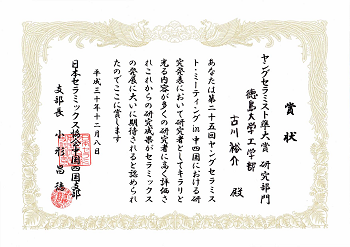 賞状
ヤングセラミスト準大賞 研究部門
徳島大学工学部
古川裕介 殿
あなたは第二十五回ヤングセラミス
ト・ミーティングin中四国における研
究発表において研究者としてキラリと
光る内容が多くの研究者に高く評価さ
れこれからの研究成果がセラミックス
の発展に大いに期待されると認められ
たのでここに賞します
平成三十年十二月八日
日本セラミックス協会中国四国支部
支部長 小形昌徳